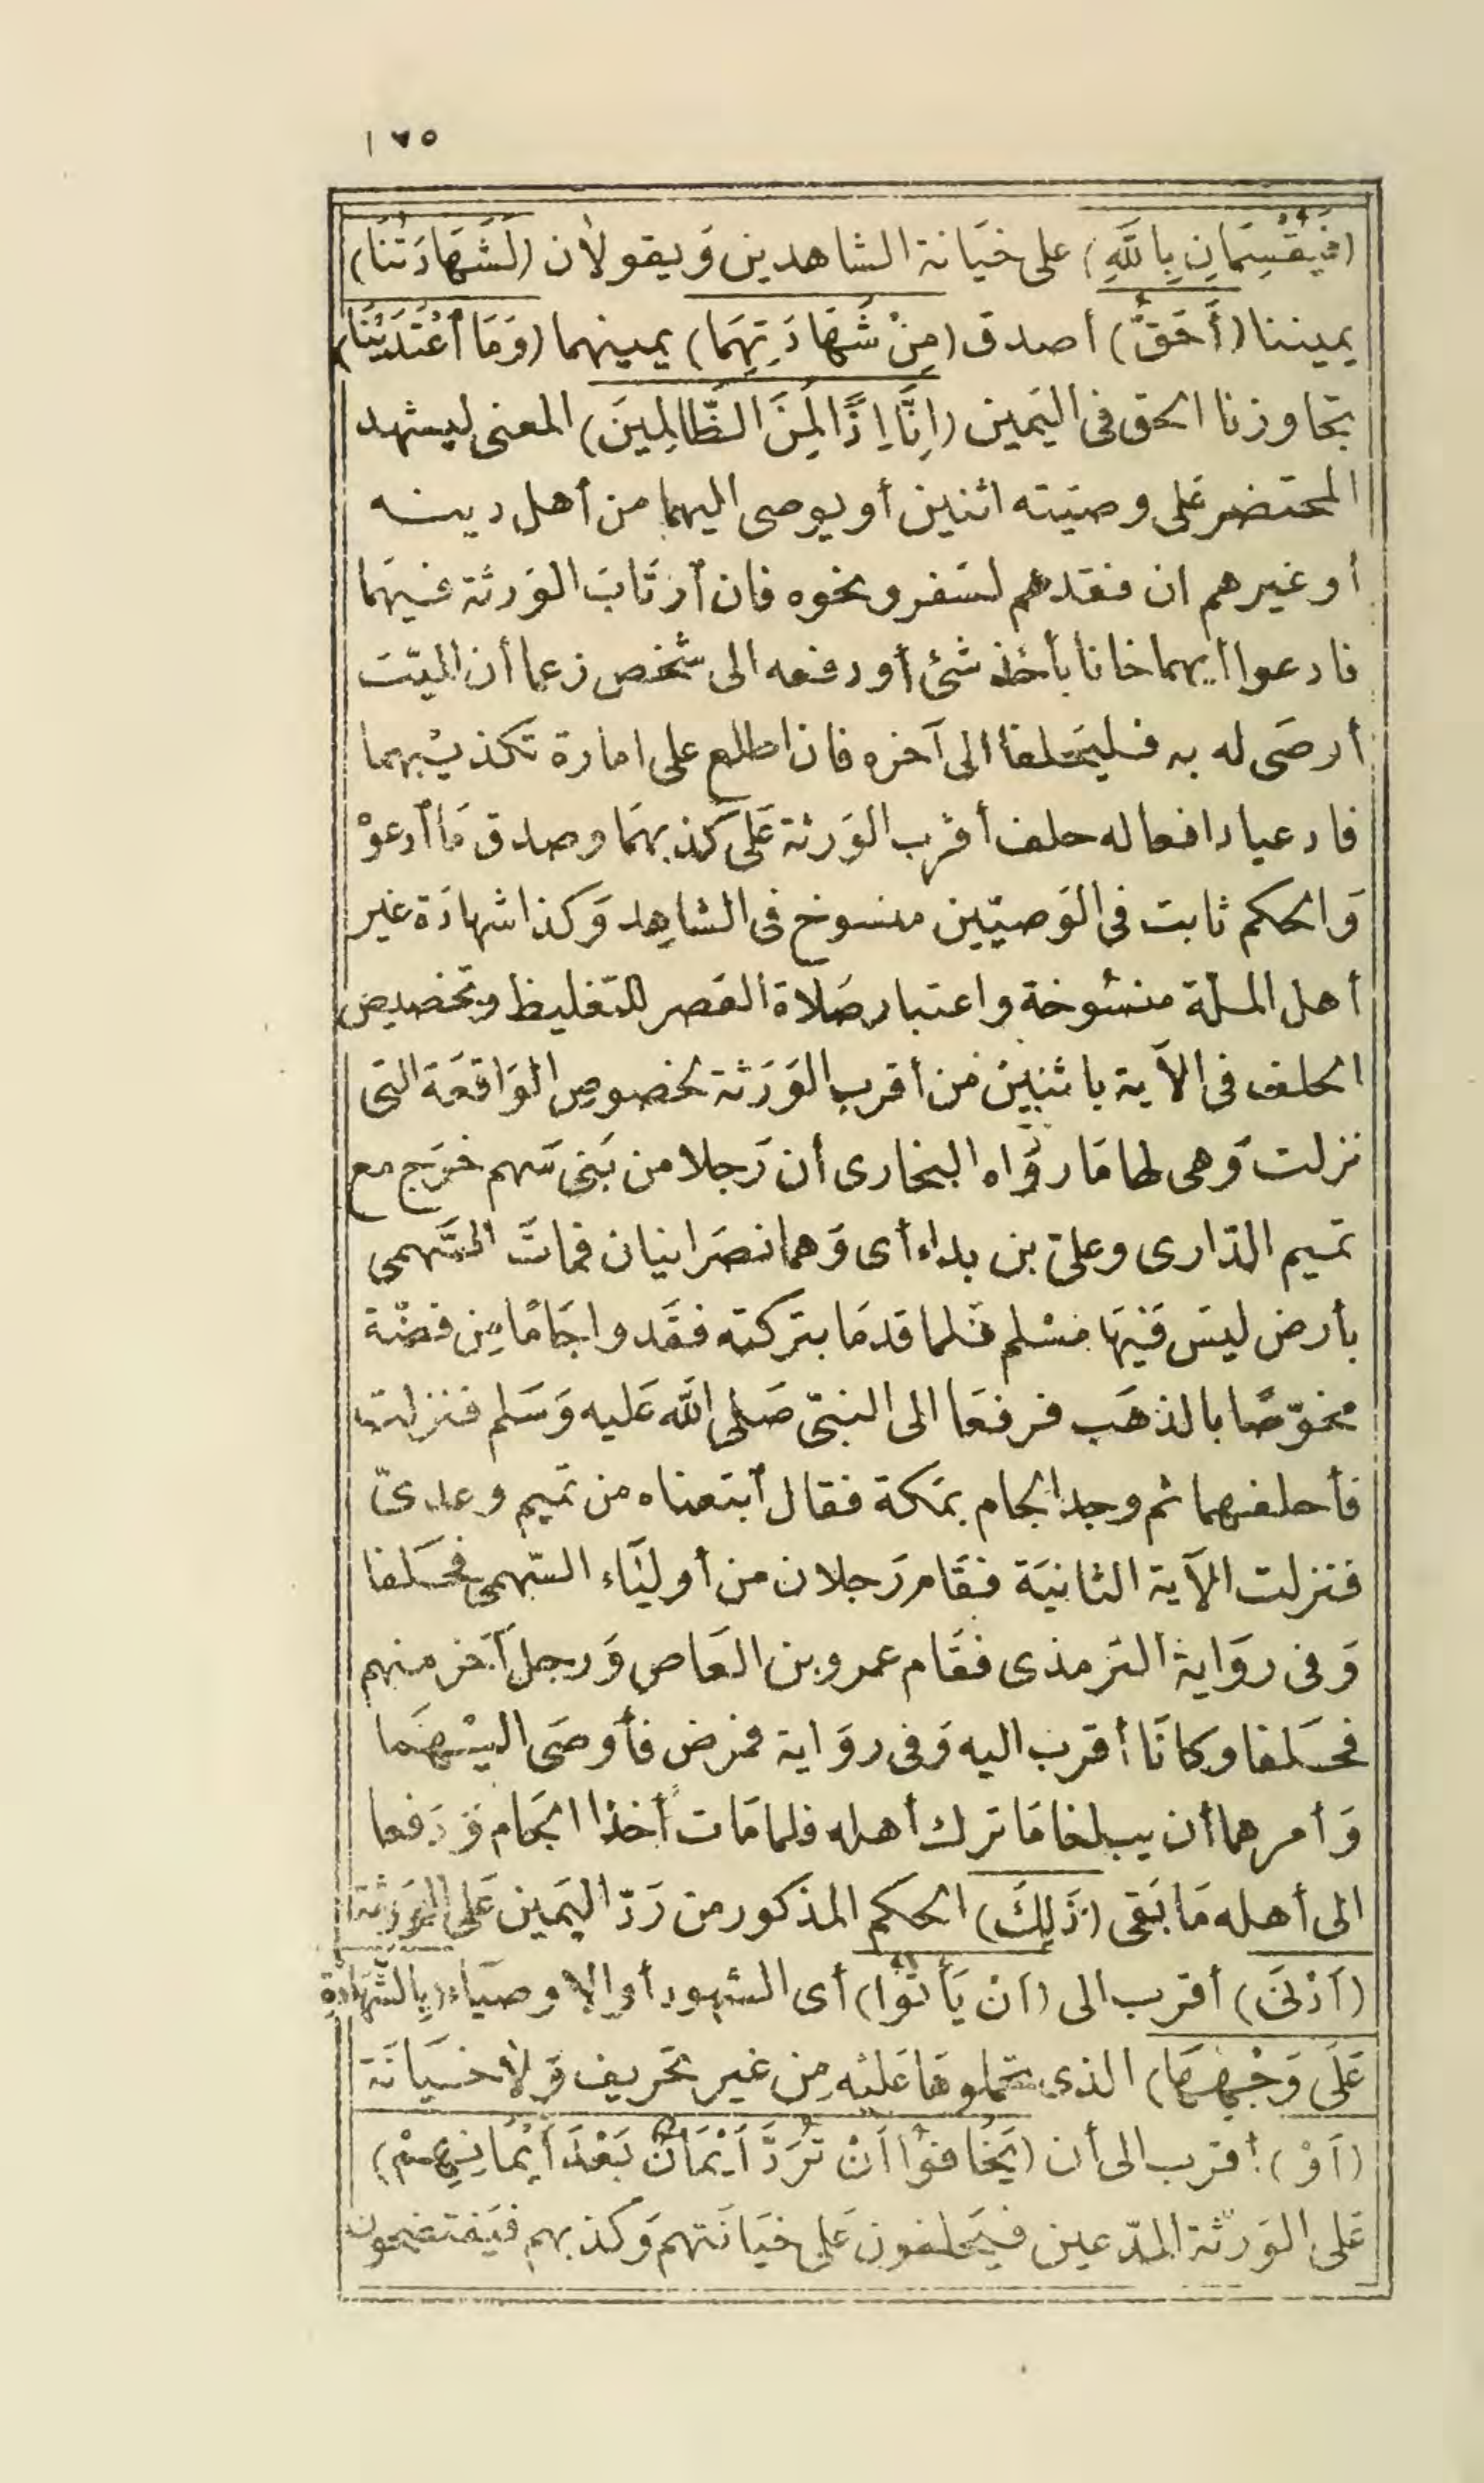 ١٧٥
(فَيُقْسِمَانِ بِاللَّهِ) على خيَانة الشاهدين وَيقولان (لَشَهَادَتُنَا)
يميننا (أَحَقُّ) أصدق (مِنْ شَهَادَتِهِمَا) يمينهما (وَمَا ٱعْتَدَيْنَا)
تجاوزنا الحق فى اليَمين (اِنَّا اِذًا لَمِنَ الظَّالِمِينَ) المعنى ليشهد
المحتضر عَلى وصيَته اثنين أو يوصى اليهما من أهل دينه
أو غيرهم ان فقدهم لسَفر ونحوه فان ٱرْتَابَ الوَرثة فيهَما
فادعوا أنهما خانا بأخذ شئ أو دفعه الى شخص زعما أن الميّت
أرصَى له به فليَحلفا الى آخره فان اطلع على امارة تكذيْبهما
فادعيا دافعا له حلف أقرب الوَرثة عَلى كَذبهمَا وصدق مَا ٱدعوْ
وَالحكم ثابت فى الوَصيّين منسوخ فى الشاهد وَكذا شهادَة غير
أهل الملّة منسُوخة واعتبار صَلاة العَصر للتّغليظ وتخصيص
الحلف فى الآية باثنين من أقرب الوَرَثة لخصوص الوَاقعَة التى
نزلت وَهى لها مَا روَاه البخارى أن رَجلا من بَنى سَهم خرَج مع
تميم الدّارى وعلىّ بن بداء أى وَهما نصرَانيان فماتَ السَّهمى
بأرض ليسَ فيهَا مسْلم فلما قدمَا بتركته فقَدوا جَامًا مِن فضّة
مخوّصًا بالذهَب فرفعَا الى النبىّ صَلى الله عَليه وَسَلم فنزلت
فأحلفهما ثم وجد الجام بمَكة فقال ٱبتعناه من تميم وعدىّ
فنزلت الآية الثانيَة فقَام رَجلان من أوليَاء السّهمى فحَلفا
وَفى روَاية الترمذى فقَام عمرو بن العَاص وَرجل آخر منهم
فحَلفا وكانَا أقرب اليه وَفى روَاية فمرض فأوصَى اليْهمَا
وَأمرهما أن يبلغا مَا ترك أهله فلما مَات أخذا الجَام وَدَفعا
الى أهله مَا بَقى (ذَلِكَ) الحكم المذكور من رَدّ اليَمين عَلى الوَرثة
(أَدْنَى) أقرب الى (اَنْ يَأْتُوا) أى الشهود أو الاوصيَاء (بِالشَّهَادَةِ
عَلَى وَجْهِهَا) الذى تحملوهَا عَليْه مِن غير تحَريف وَلا خيَانَة
(اَوْ) أقرب الى أن (يَخَافُوا اَنْ تُرَدَّ اَيْمَانٌ بَعْدَ أَيْمَانِهِمْ)
عَلى الوَرثة المدّعين فيَحلفون عَلى خيَانَتهم وَكذبهم فيَفتضحون